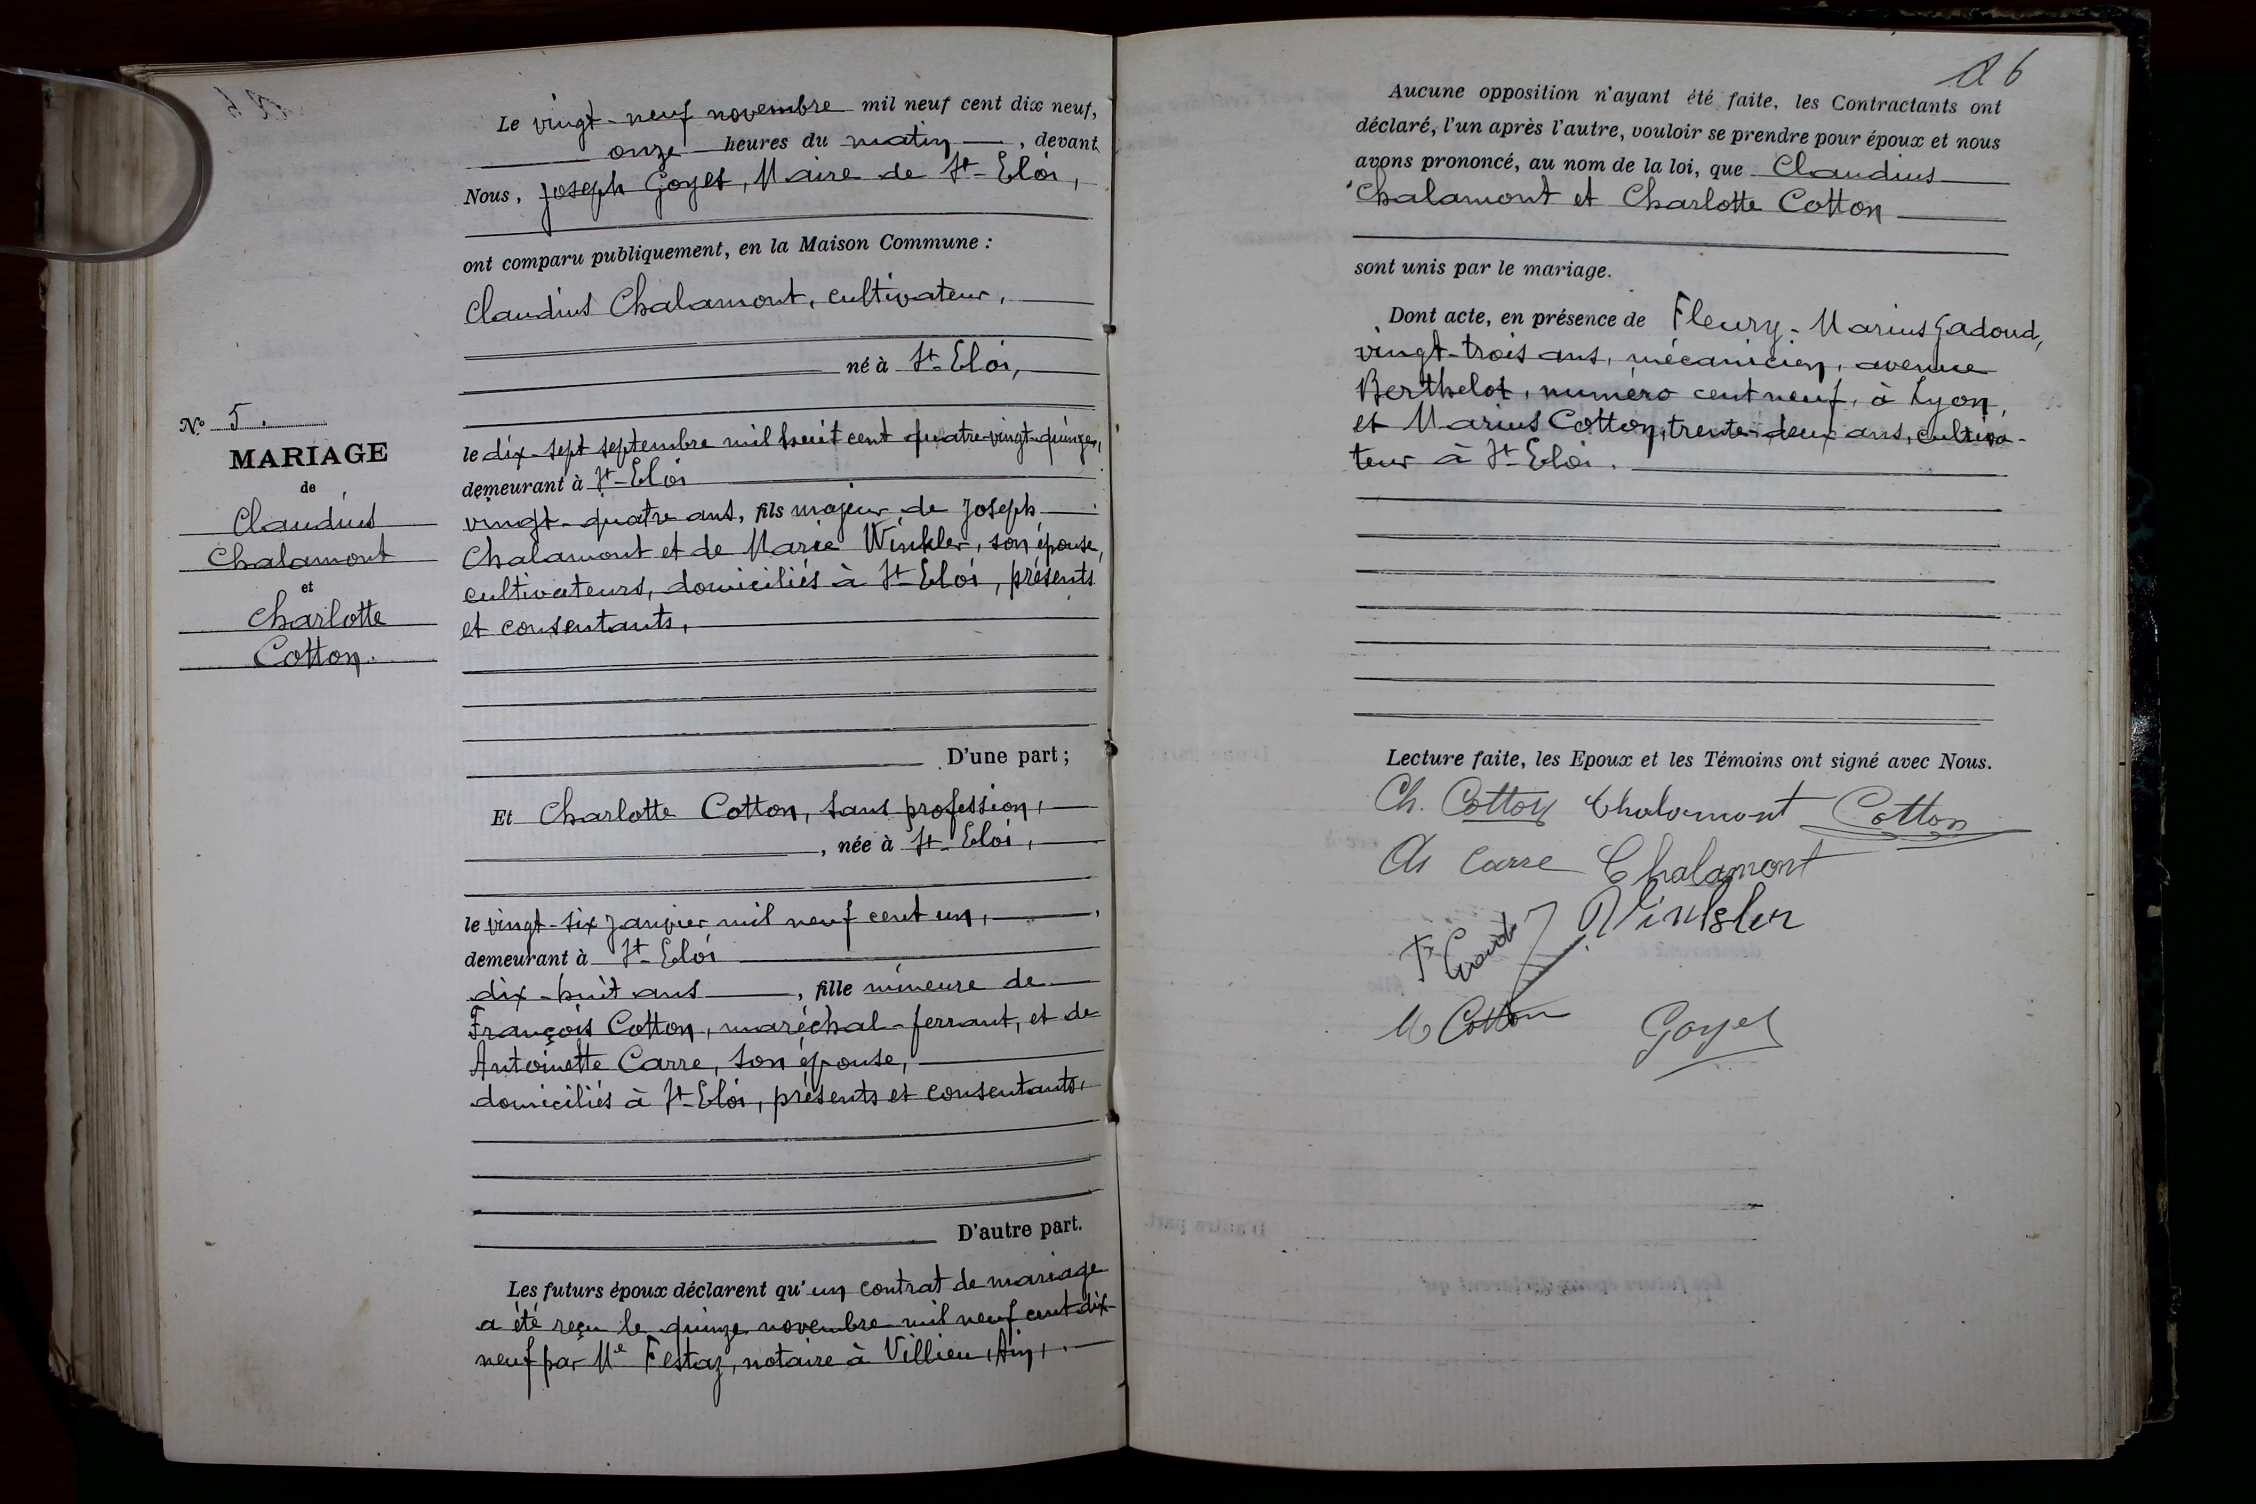 Le vingt-neuf novembre mil neuf cent dix neuf,
onze heures du matin, devant
Nous, Joseph Goyet, Maire de St-Eloi,
ont comparu publiquement, en la Maison Commune :
Claudius Chalamont, cultivateur,
né à St-Eloi,
le dix-sept septembre mil huit cent quatre-vingt-quinze,
demeurant à St-Eloi
vingt-quatre ans, fils majeur de Joseph
Chalamont et de Marie Winkler, son épouse,
cultivateurs, domiciliés à St-Eloi, présents
et consentants,
D'une part ;
Et Charlotte Cotton, sans profession,
, née à St-Eloi,
le vingt-six janvier mil neuf cent un,
demeurant à St-Eloi
dix-huit ans, fille mineure de
François Cotton, maréchal-ferrant, et de
Antoinette Carre, son épouse,
domiciliés à St-Eloi, présents et consentants,
D'autre part.
Les futurs époux déclarent qu'un contrat de mariage
a été reçu le quinze novembre mil neuf cent dix-
neuf par Me Festaz, notaire à Villieu, Ain,.
No 5.
MARIAGE
de
Claudius
Chalamont
et
Charlotte
Cotton.
6
Aucune opposition n'ayant été faite, les Contractants ont
déclaré, l'un après l'autre, vouloir se prendre pour époux et nous
avons prononcé, au nom de la loi, que Claudius
Chalamont et Charlotte Cotton
sont unis par le mariage.
Dont acte, en présence de Fleury-Marius Gadoud,
vingt-trois ans, mécanicien, avenue
Berthelot, numéro cent neuf, à Lyon,
et Marius Cotton, trente-deux ans, cultiva-
teur à St-Eloi.
Lecture faite, les Epoux et les Témoins ont signé avec Nous.
Ch. Cotton Chalamont Cotton
Carre Chalamont
Winkler
M Cotton Goyet